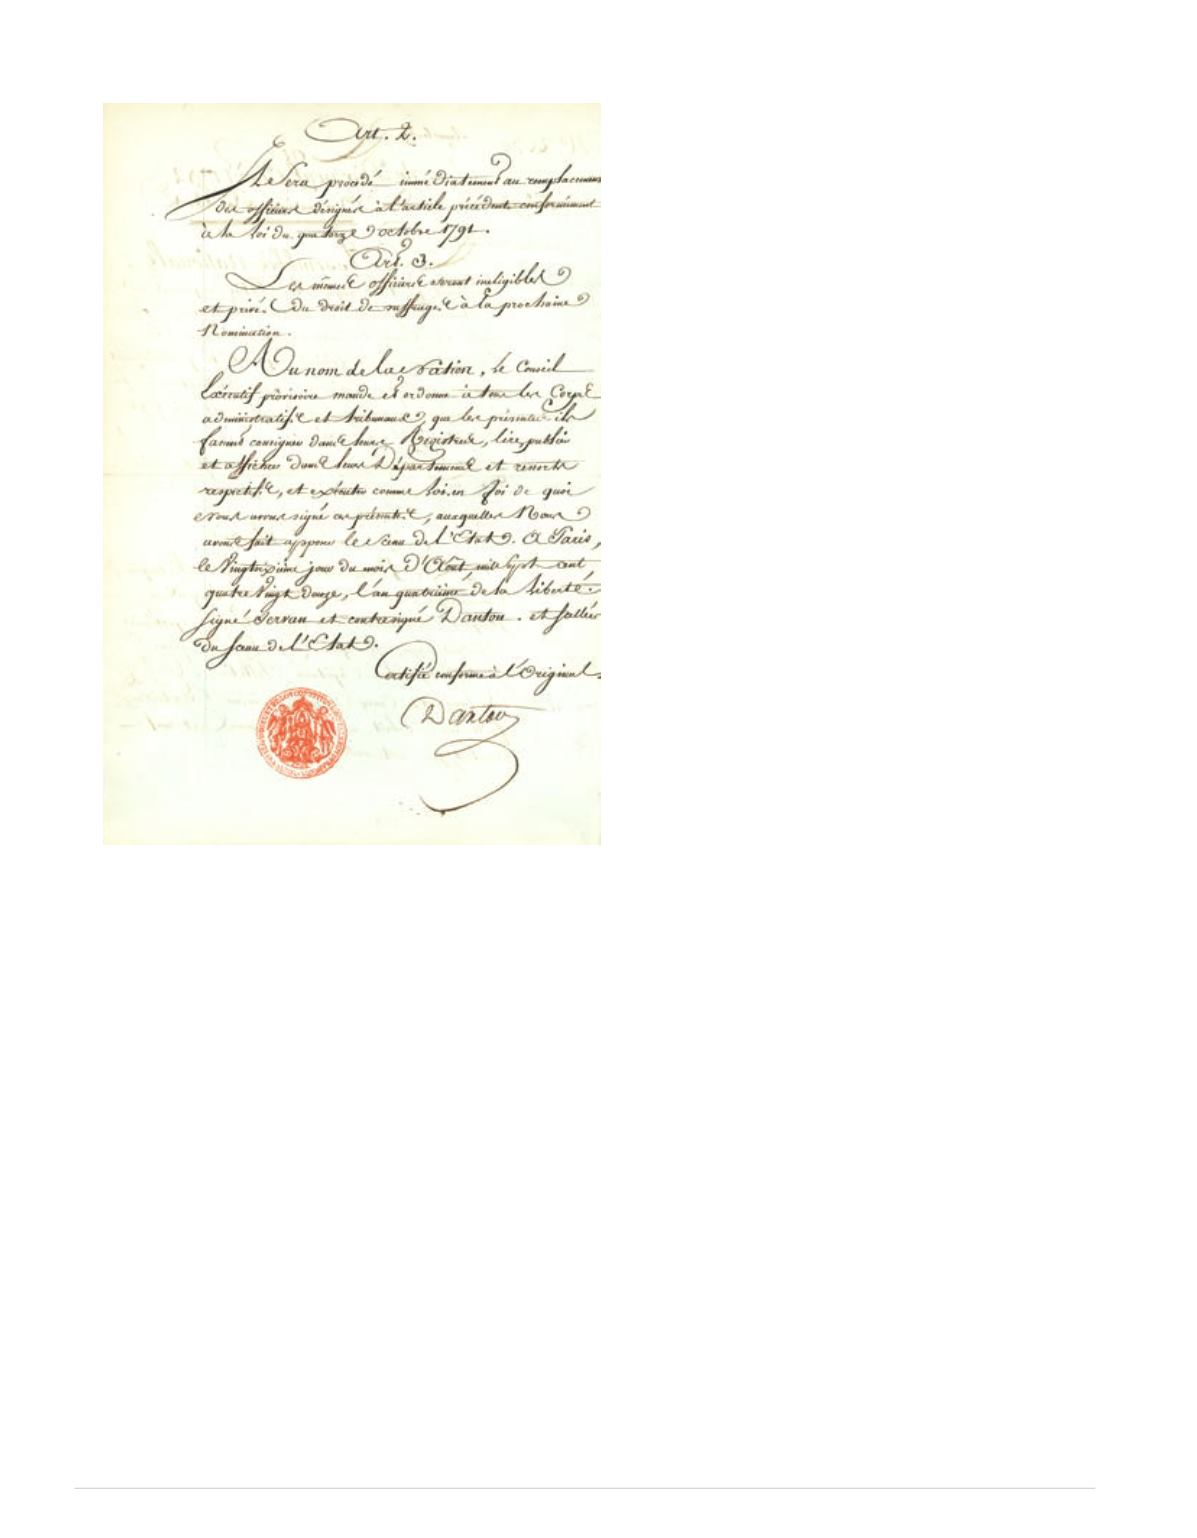 Art. 2.
Il Sera procédé immédiatement au remplacement
des officiers désignés à l'article précédent conformément
à la loi du quatorze octobre 1791.
Art. 3.
Les mêmes officiers seront ineligibles
et privés du droit de suffrages à la prochaine
Nomination.
Au nom de la Nation, le Conseil
Exécutif provisoire mande et ordonne à tous les Corps
administratifs et tribunaux, que les présentes ils
fassent consigner dans leurs Registres, lire, publier
et afficher dans leurs Départemens et ressorts
respectifs, et exécuter comme loi. en foi de quoi
Nous avons signé ces présentes, auxquelles Nous
avons fait apposer le sceau de l'Etat. A Paris,
le Vingtsixième jour du mois d'Août, mil sept cent
quatre Vingt douze, l'an quatrième de la liberté.
Signé Servan et contresigné Danton. et scellée
du sceau de l'Etat.
Certifié conforme à l'Original.
Danton